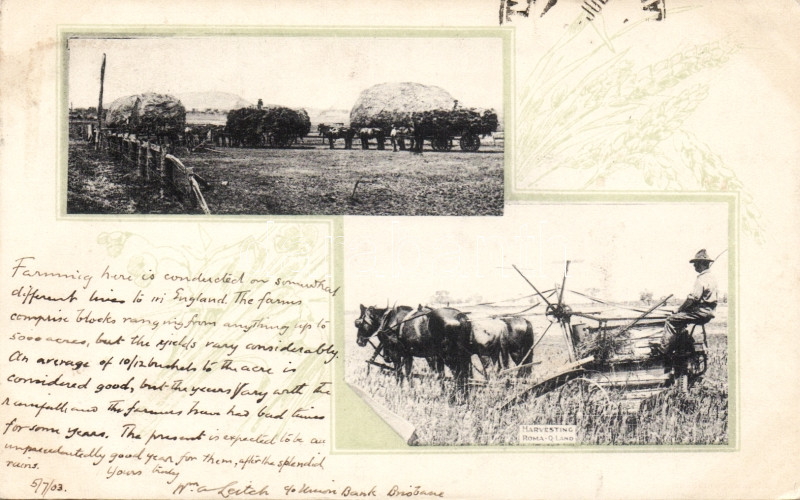 JUL
Farming here is conducted on somewhat
different lines to in England. The farms
comprise blocks ranging from anything up to
5000 acres, but the yields vary considerably.
An average of 10/12 bushels to the acre is
considered good, but the years vary with the
rainfall, and the farmers have had bad times
for some years. The present is expected to be an
unprecedentedly good year for them, after the splendid
rains. Yours truly
5/7/03. Wm a Leitch c/o Union Bank Brisbane
HARVESTING
ROMA-Q-LAND